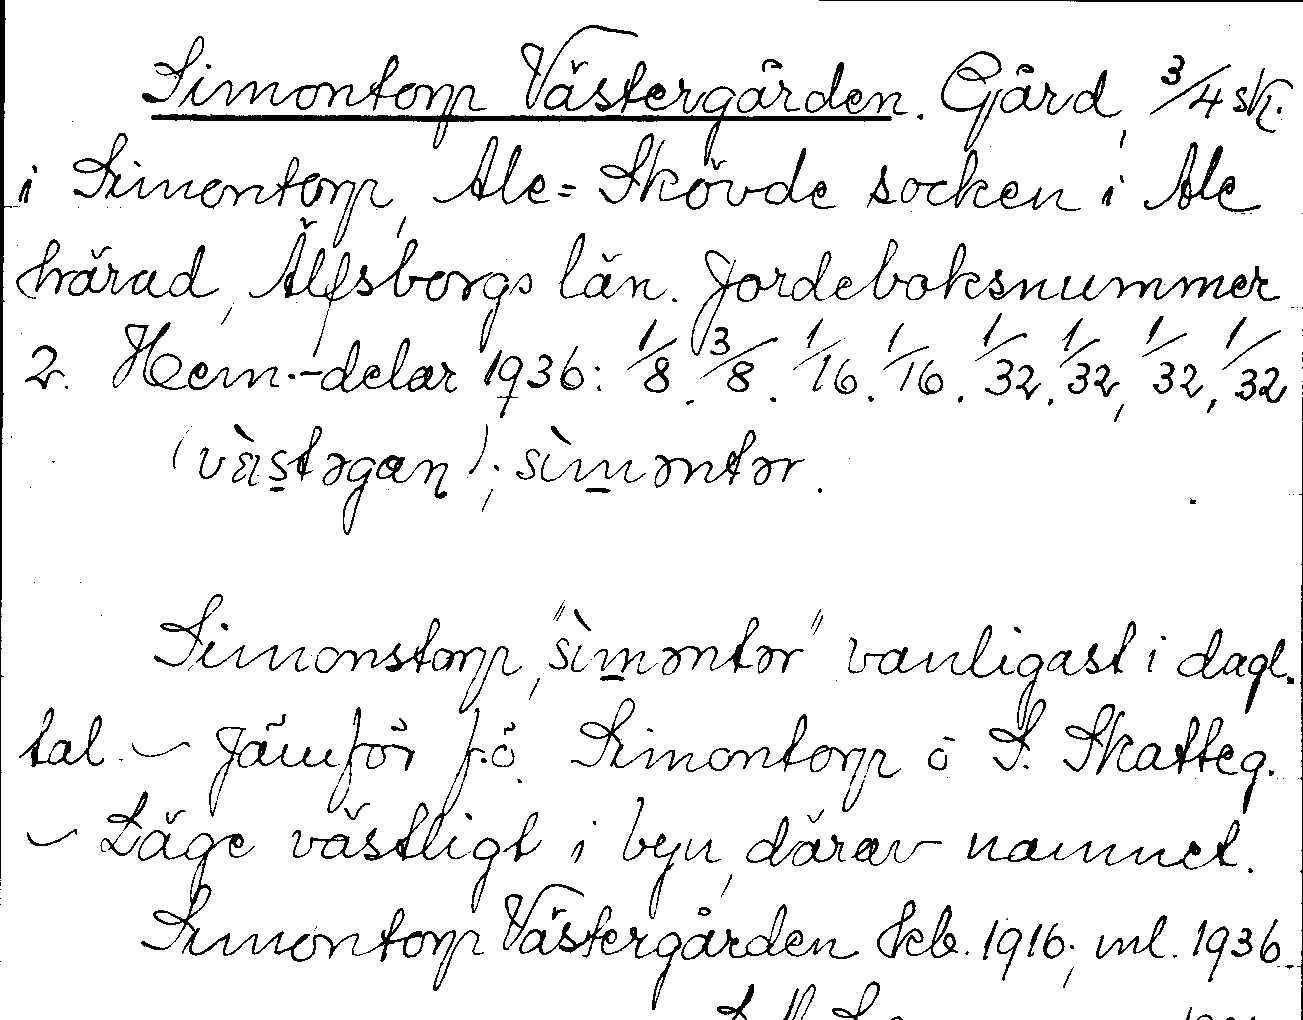 Simontorp Västergården. Gård, 3/4 sk.
i Simontorp, Ale=Skövde socken i Ale
härad, Älfsborgs län. Jordeboksnummer
2. Hem.-delar 1936: 1/8. 3/8. 1/16. 1/16. 1/32. 1/32, 1/32, 1/32
(vä̀stəgaɳ); sìməntər.
Simonstorp, "sìməntər" vanligast i dagl.
tal. – Jämför f.ö. Simontorp o S. Skatteg.
– Läge västligt i byn, därav namnet.
Simontorp Västergården Jeb. 1916; ml. 1936.